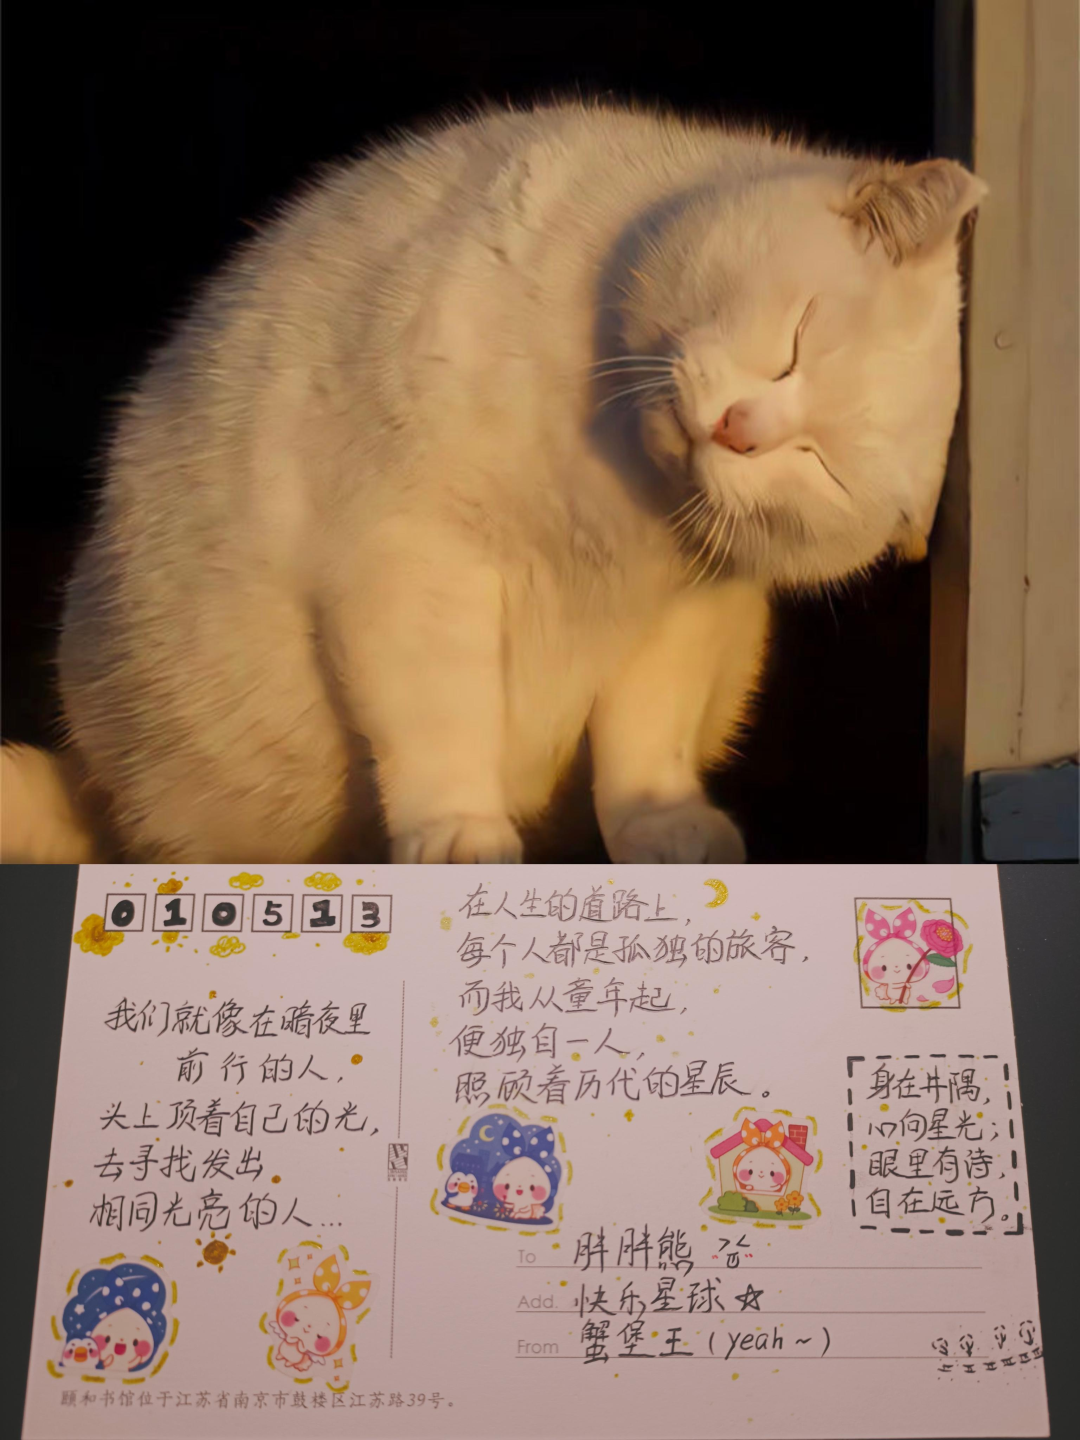 010513
我们就像在暗夜里
前行的人，
头上顶着自己的光，
去寻找发出
相同光亮的人...
在人生的道路上，
每个人都是孤独的旅客，
而我从童年起，
便独自一人，
照顾着历代的星辰。
身在井隅，
心向星光；
眼里有诗，
自在远方。
To 胖胖熊
Add. 快乐星球☆
From 蟹堡王（yeah~）
颐和书馆位于江苏省南京市鼓楼区江苏路39号。